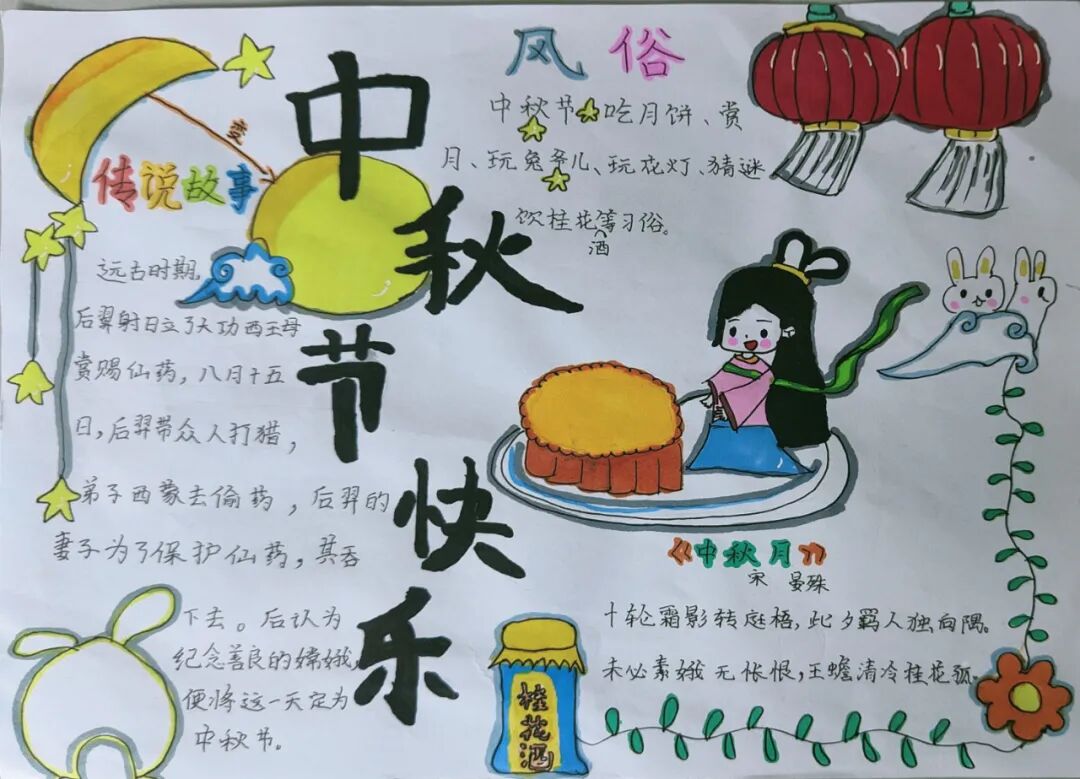 中秋节快乐
变
传说故事
远古时期,
后羿射日立了大功西王母
赏赐仙药,八月十五
日,后羿带众人打猎,
弟子西蒙去偷药,后羿的
妻子为了保护仙药,其吞
下去。后认为
纪念善良的嫦娥,
便将这一天定为
中秋节。
风俗
中秋节吃月饼、赏
月、玩兔爷儿、玩花灯、猜谜
饮桂花酒等习俗。
《中秋月》
宋 晏殊
十轮霜影转庭梧,此夕羁人独向隅。
未必素娥无怅恨,玉蟾清冷桂花孤
桂花酒